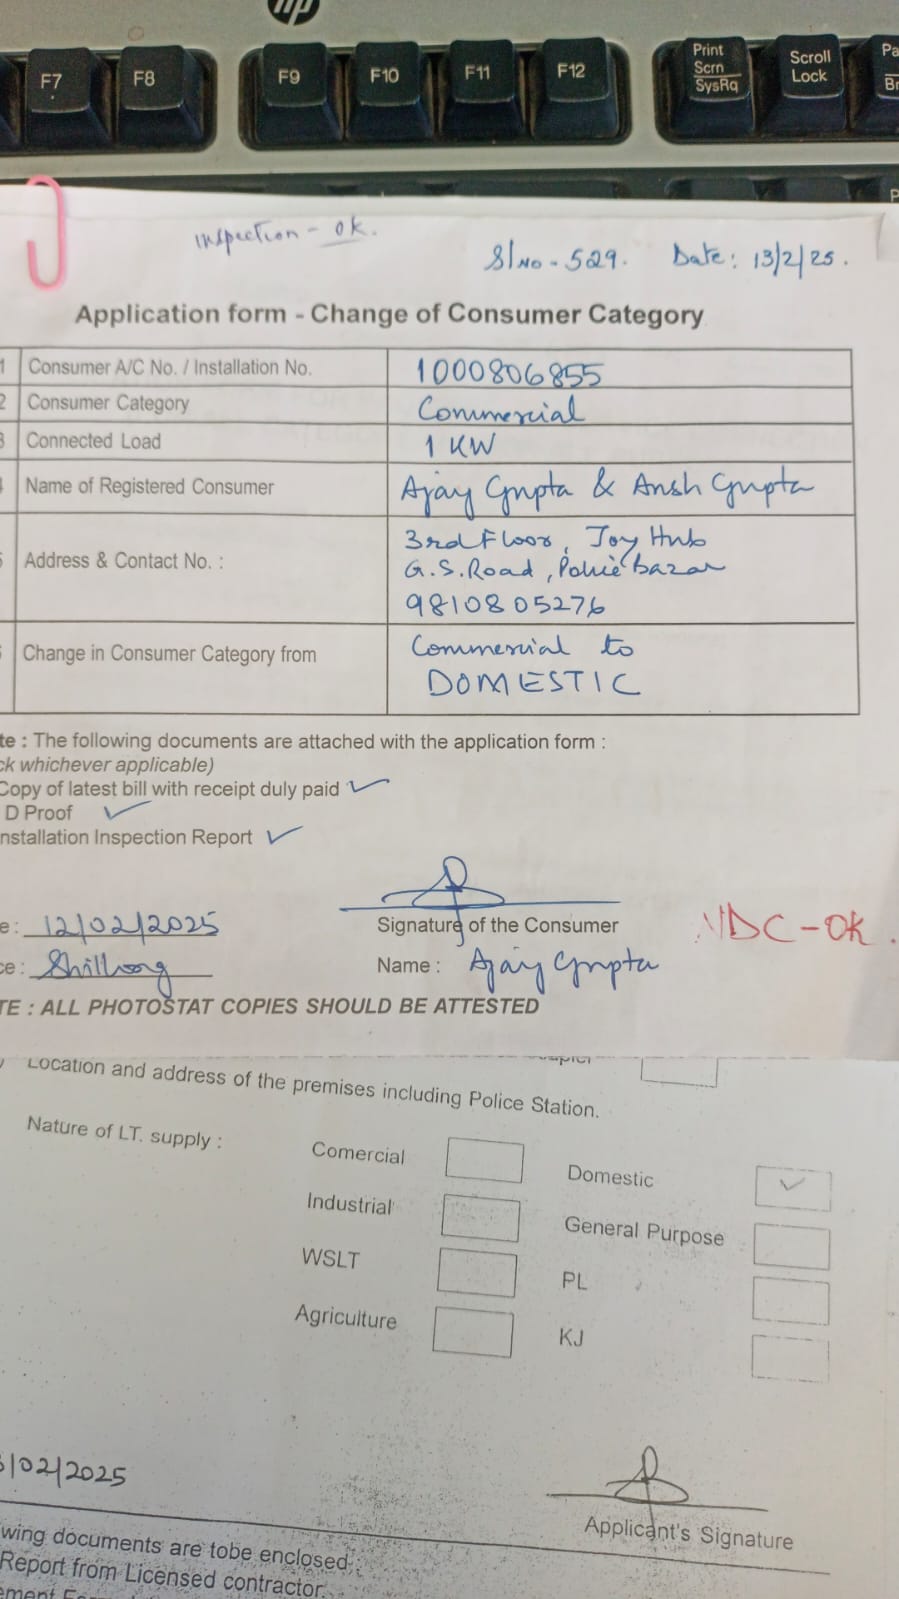 hp
F7 F8 F9 F10 F11 F12 Print Scrn SysRq Scroll Lock Pa Br
P
Inspection - ok.
Sl No - 529. Date: 13/2/25.
Application form - Change of Consumer Category
1 Consumer A/C No. / Installation No. 1000806855
2 Consumer Category Commercial
3 Connected Load 1 KW
Name of Registered Consumer Ajay Gupta & Ansh Gupta
Address & Contact No. : 3rd Floor, Joy Hub
G.S. Road, Police Bazar
9810805276
Change in Consumer Category from Commercial to
DOMESTIC
te : The following documents are attached with the application form :
ck whichever applicable)
Copy of latest bill with receipt duly paid ✓
D Proof ✓
nstallation Inspection Report ✓
e: 12/02/2025
Signature of the Consumer
NDC - OK.
ce: Shillong
Name : Ajay Gupta
TE : ALL PHOTOSTAT COPIES SHOULD BE ATTESTED
Location and address of the premises including Police Station.
Nature of LT. supply :
Comercial
Domestic ✓
Industrial
General Purpose
WSLT
PL
Agriculture
KJ
/02/2025
Applicant's Signature
wing documents are tobe enclosed
Report from Licensed contractor.